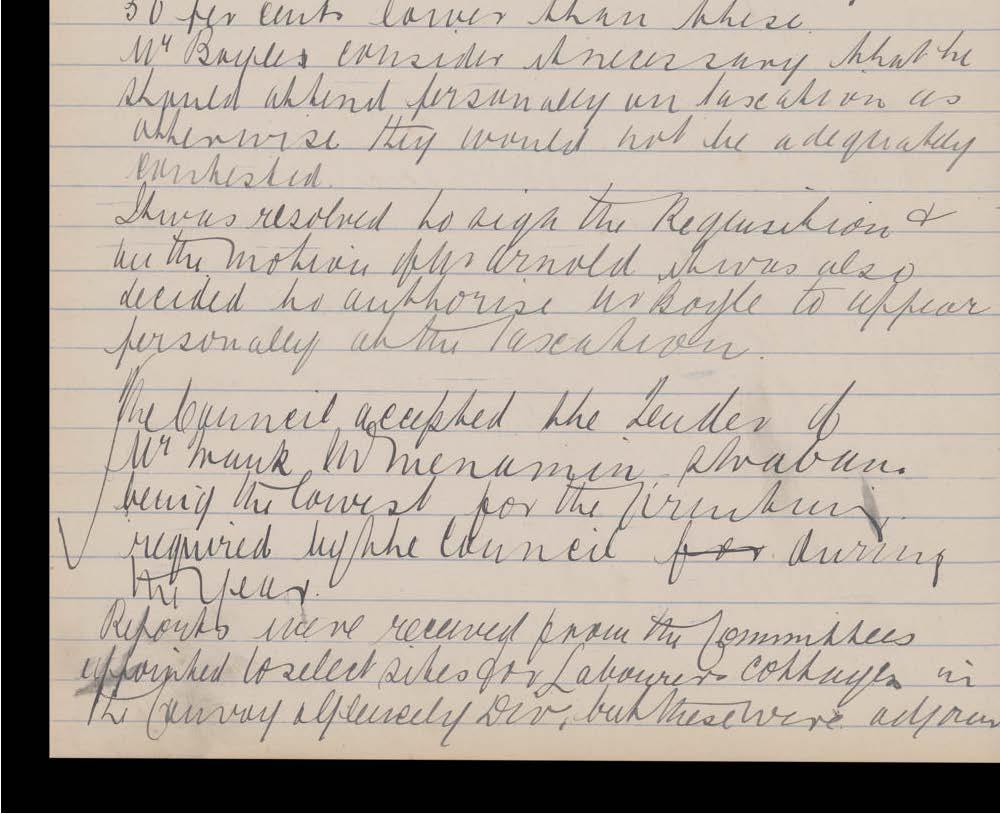 50 per cents lower than these.
Mr Boyles consider it necessary that he
should attend personally on taxation as
otherwise they would not be adequately
contested.
It was resolved to sign the Requisition &
on the motion of Mr Arnold it was also
decided to authorise Mr Boyle to appear
personally at the Taxation.
The Council accepted the Tender of
Mr Frank McMenamin, Strabane
being the lowest for the Printing
required by the Council for during
the year.
Reports were received from the Committees
appointed to select sites for Labourers Cottages in
the Convoy Div, but these were adjourn